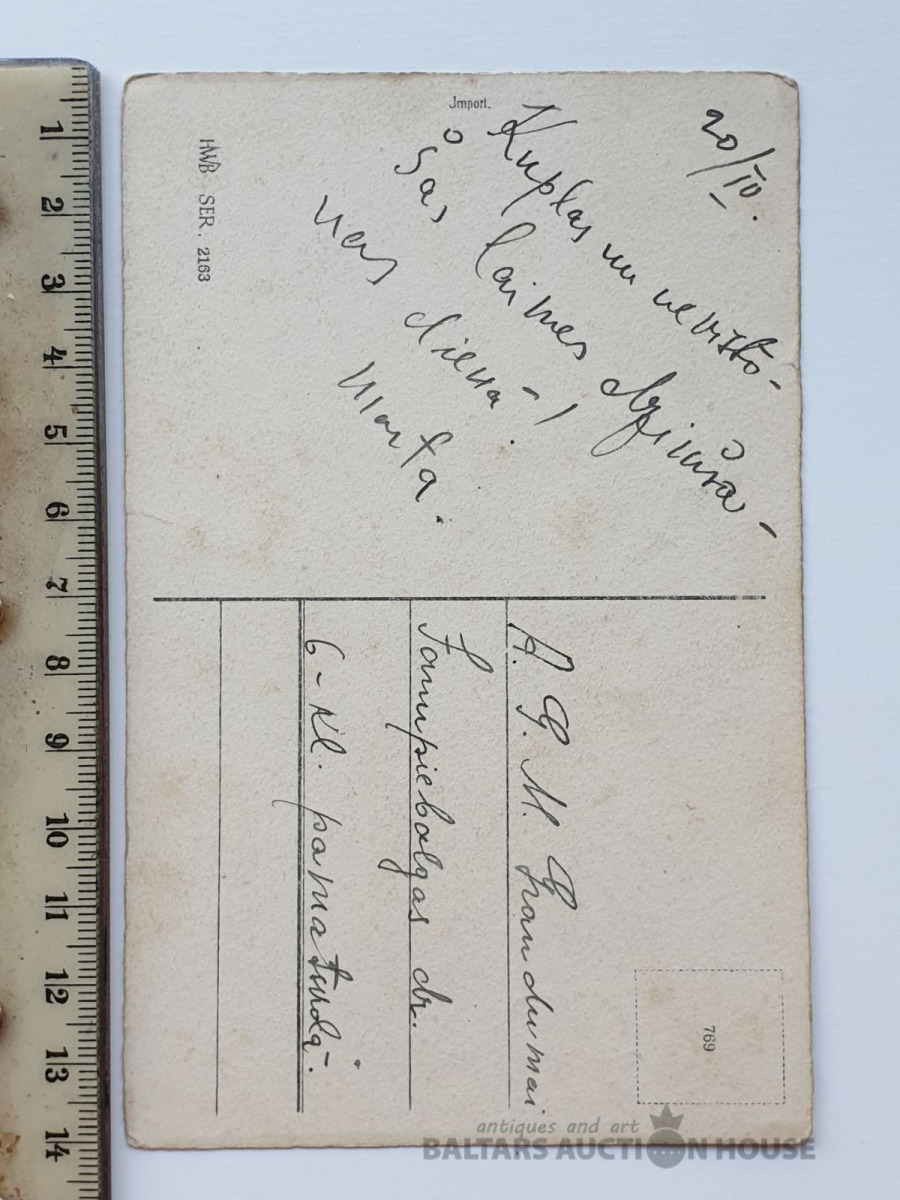 Jmport.
20/IV.
Kuplas un nevīsto-
šas laimes dzimša-
nas dienā!
Marta.
HWB SER. 2163
769
A. G. M. Graudumai
Jaunpiebalgas dr.
6-kl.
1 2 3 4 5 6 7 8 9 10 11 12 13 14
antiques and art
BALTARS AUCTION HOUSE